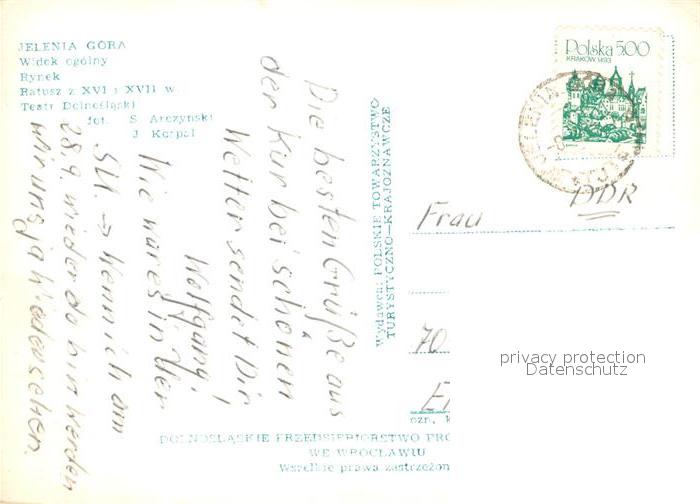 JELENIA GÓRA
Widok ogólny
Rynek
Ratusz z XVI i XVII w
Teatr Dolnośląski
fot. S Arczyński
J Korpal
Die besten Grüße aus
der Kur bei schönen
Wetter sendet Dir
Wolfgang!
Wie war es in
SU. → Wenn ich am
28.9. wieder da bin werden
wir uns ja sehen.
Wydawca: POLSKIE TOWARZYSTWO
TURYSTYCZNO-KRAJOZNAWCZE
Polska 5.00
KRAKÓW 1493
JELENIA
DDR
Frau
70
ozn. k
DOLNOŚLĄSKIE PRZEDSIĘBIORSTWO PRO
WE WROCŁAWIU
Wszelkie prawa zastrzeżon
privacy protection
Datenschutz